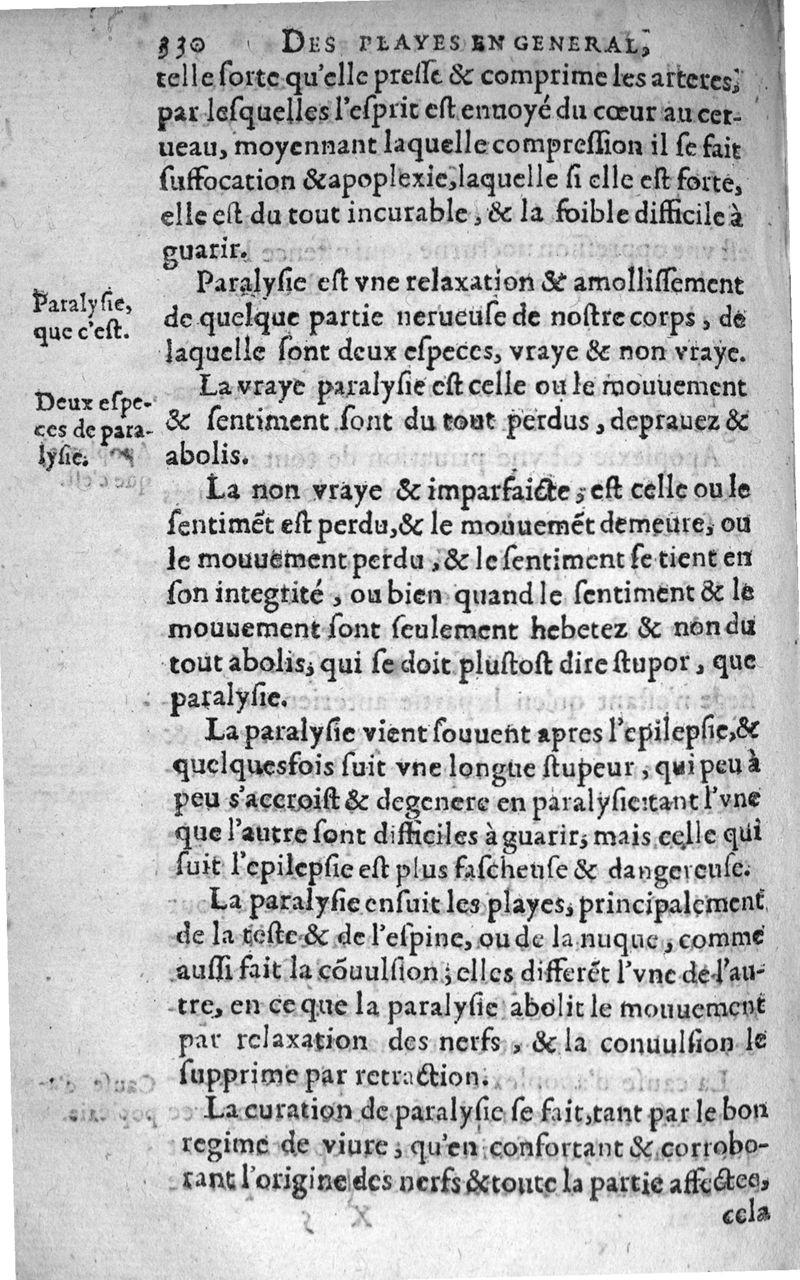 330 DES PLAYES EN GENERAL,
telle ſorte qu'elle preſſe & comprime les arteres,
par leſquelles l'eſprit eſt enuoyé du cœur au cer-
ueau, moyennant laquelle compreſſion il ſe fait
ſuffocation & apoplexie, laquelle ſi elle eſt forte,
elle eſt du tout incurable, & la foible difficile à
guarir.
Paralyſie eſt vne relaxation & amolliſſement
de quelque partie nerueuſe de noſtre corps, de
laquelle ſont deux eſpeces, vraye & non vraye.
Paralyſie,
que c'eſt.
La vraye paralyſie eſt celle ou le mouuement
& ſentiment ſont du tout perdus, deprauez &
abolis.
Deux eſpe-
ces de para-
lyſie.
La non vraye & imparfaicte, eſt celle ou le
ſentimẽt eſt perdu, & le mouuemẽt demeure, ou
le mouuement perdu, & le ſentiment ſe tient en
ſon integtité, ou bien quand le ſentiment & le
mouuement ſont ſeulement hebetez & non du
tout abolis, qui ſe doit pluſtoſt dire ſtupor, que
paralyſie.
La paralyſie vient ſouuent apres l'epilepſie, &
quelquesfois ſuit vne longue ſtupeur, qui peu à
peu s'accroiſt & degenere en paralyſie: tant l'vne
que l'autre ſont difficiles à guarir, mais celle qui
ſuit l'epilepſie eſt plus faſcheuſe & dangereuſe.
La paralyſie enſuit les playes, principalement
de la teſte & de l'eſpine, ou de la nuque, comme
auſſi fait la cõuulſion; elles differẽt l'vne de l'au-
tre, en ce que la paralyſie abolit le mouuement
par relaxation des nerfs, & la conuulſion le
ſupprime par retraction.
La curation de paralyſie ſe fait, tant par le bon
regime de viure, qu'en confortant & corrobo-
rant l'origine des nerfs & toute la partie affectee,
cela